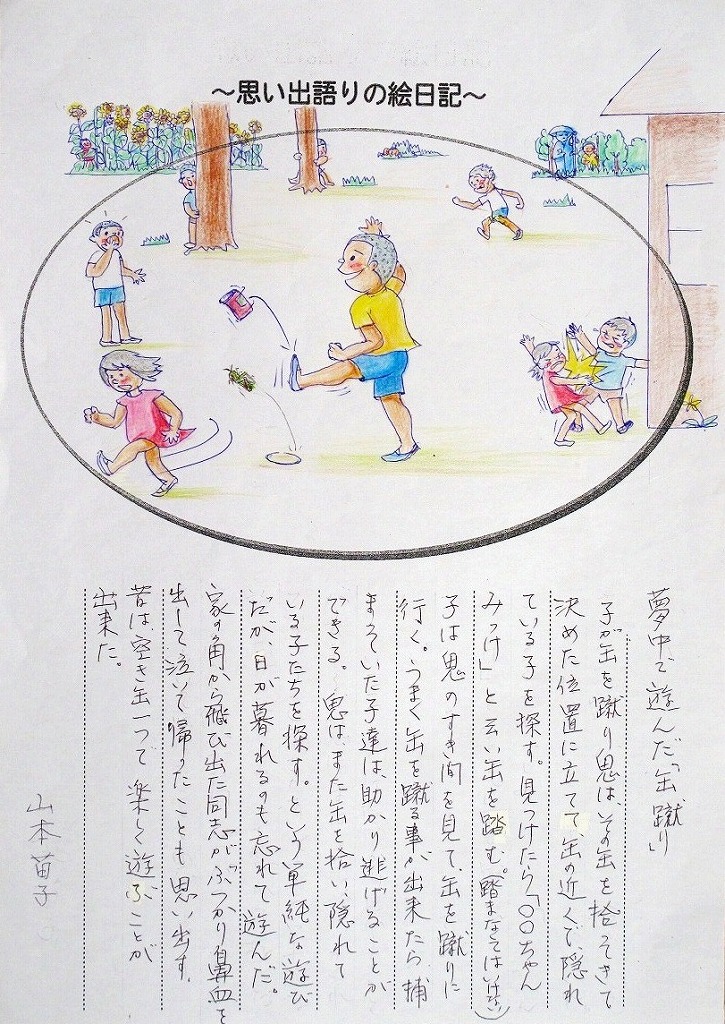 ～思い出語りの絵日記～
夢中で遊んだ「缶蹴り」
子が缶を蹴り鬼は、その缶を拾ってきて
決めた位置に立てて缶の近くで、隠れ
ている子を探す。見つけたら「〇〇ちゃん
みっけ」と云い缶を踏む。(踏まなくてはいけない)
子は鬼のすき間を見て、缶を蹴りに
行く。うまく缶を蹴る事が出来たら、捕
まっていた子達は、助かり逃げることが
できる。鬼は、また缶を拾い、隠れて
いる子たちを探す。という単純な遊び
だが、日が暮れるのも忘れて遊んだ。
家の角から飛び出た同志がぶつかり鼻血を
出して泣いて帰ったことも思い出す。
昔は、空き缶一つで楽しく遊ぶことが
出来た。
山本苗子